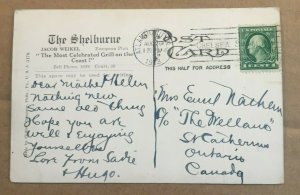 The Shelburne
JACOB WEIKEL European Plan
"The Most Celebrated Grill on the
Coast!"
Bell Phone,
This space may be used
POST
CARD
THIS HALF FOR ADDRESS
Dear Mabel & Helen
Nothing new
Same old thing
Hope you are
well & enjoying
yourselves
Love from Sadie
& Hugo.
Mrs Emil
To "The Welland"
St Catherines
Ontario
Canada